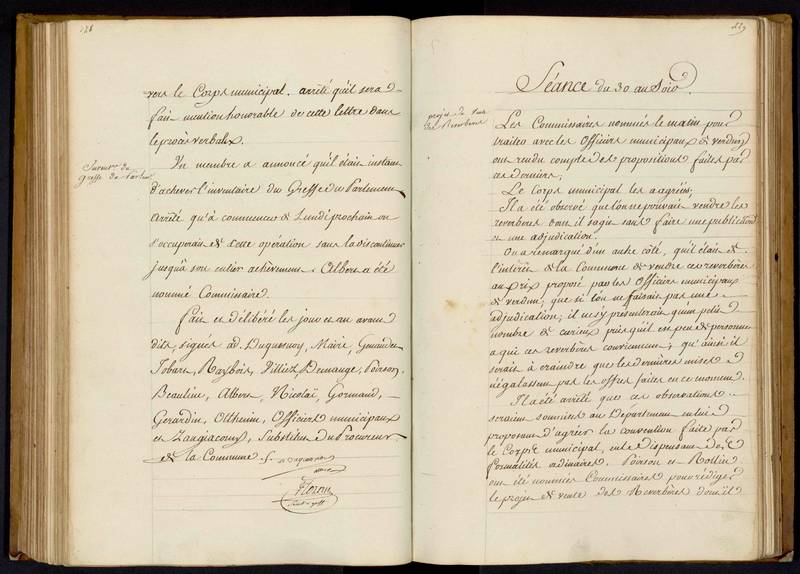 vers le Corps municipal. arrêté qu'il sera
fait mention honorable de cette lettre dans
le procès verbal.
Inventre du
greffe du Parlemt
Un membre a annoncé qu'il était instant
d'achever l'inventaire du Greffe du Parlement
Arrêté qu'à commencer de Lundi prochain on
s'occuperait de cette opération sans la discontinuer
jusqu'à son entier achèvement. Albert a été
nommé Commissaire.
Fait et délibéré les jour et an avant
dits, signés ad. Duquesnoy, Maire, Genaudet
Jobart, Rayboïs, Villiez, Demange, Poirson,
Beaulieu, Albert, Nicolaï, Gormand,
Gerardin, Othenin, Officiers municipaux
et Zangiacomy, Substitut du Procureur
de la Commune.
a Duquesnoy
maire
Floron
229
Séance du 30 au Soir.
projet de vente
des Reverbères
Les Commissaires nommés le matin pour
traiter avec les Officiers municipaux de verdun
ont rendu compte des propositions faites par
ces derniers;
Le Corps municipal les a agréées;
Il a été observé que l'on ne pouvait vendre les
reverbères dont il s'agit sans faire une publication
et une adjudication.
On a remarqué d'un autre côté, qu'il était de
l'intérêt de la Commune de vendre ces reverbères
au prix proposé par les Officiers municipaux
de verdun; que si l'on ne faisait pas une
adjudication, il ne s'y présenterait qu'un petit
nombre de curieux puisqu'il est peu de personnes
a qui ces reverbères conviennent; qu'ainsi il
serait à craindre que les dernières mises
n'égalassent pas les offres faites en ce moment.
Il a été arrêté que ces observations
seraient soumises au Département en lui
proposant d'agréer la convention faite par
le Corps municipal, en le dispensant de
formalités ordinaires. Poirson et Rollin
ont été nommés Commissaires pour rédiger
le projet de vente des Reverbères dont il